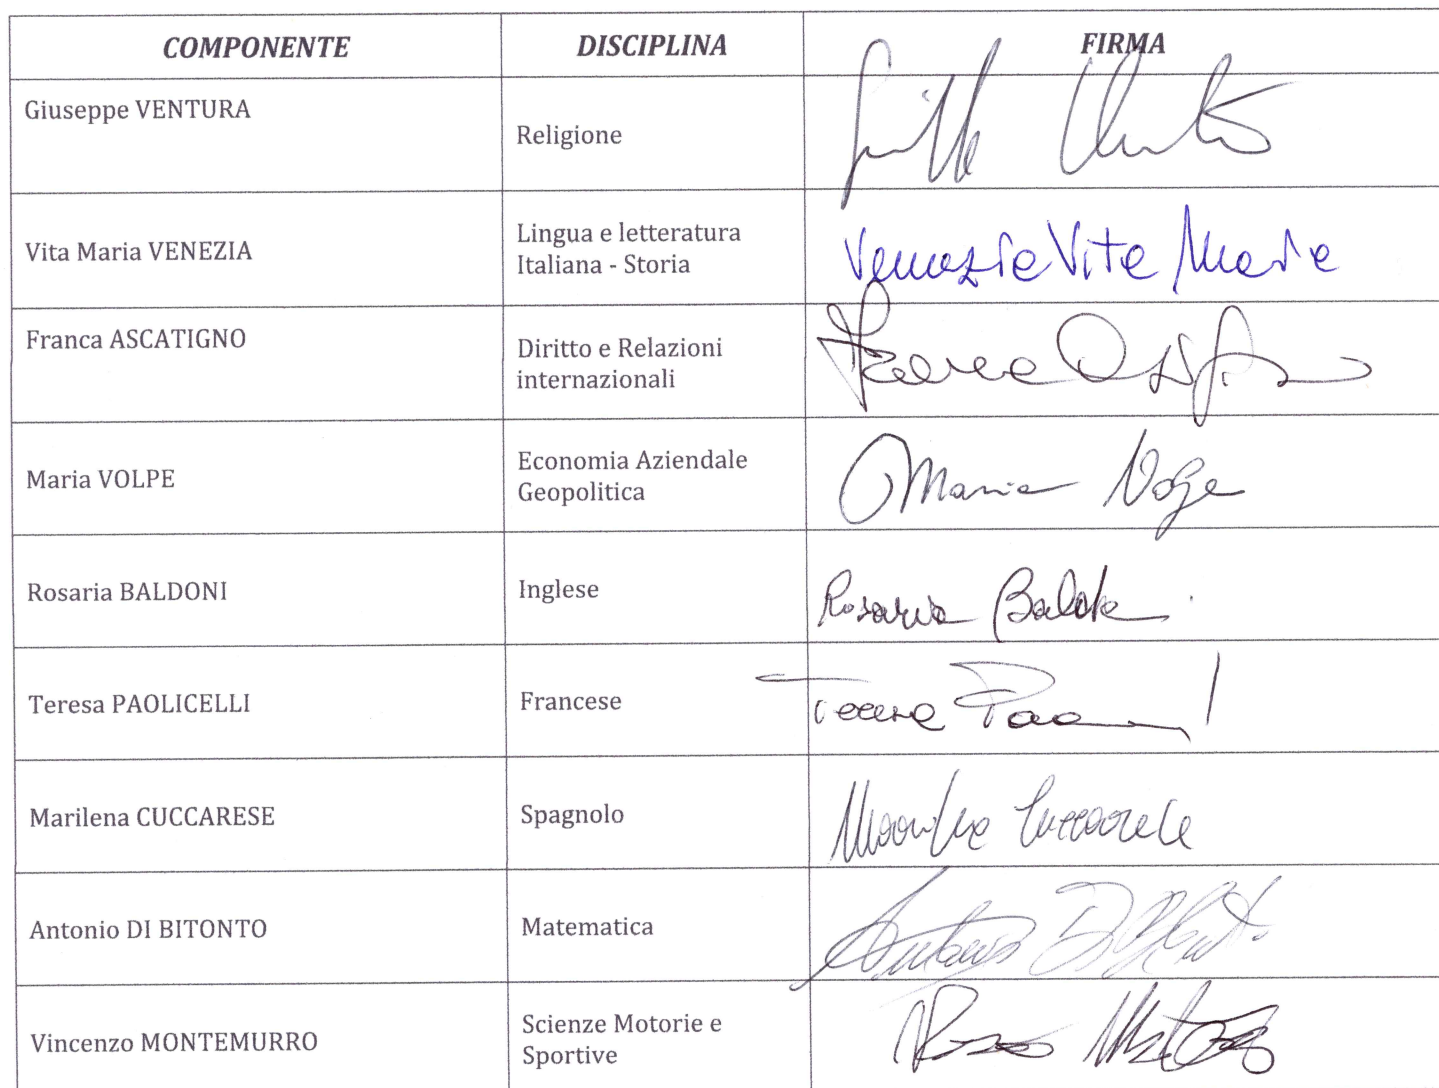 COMPONENTE DISCIPLINA FIRMA
Giuseppe VENTURA
Religione
Vita Maria VENEZIA
Lingua e letteratura
Italiana - Storia
Venezia Vita Maria
Franca ASCATIGNO
Diritto e Relazioni
internazionali
Maria VOLPE
Economia Aziendale
Geopolitica
Maria Volpe
Rosaria BALDONI
Inglese
Rosaria
Teresa PAOLICELLI
Francese
Marilena CUCCARESE
Spagnolo
Antonio DI BITONTO
Matematica
Vincenzo MONTEMURRO
Scienze Motorie e
Sportive